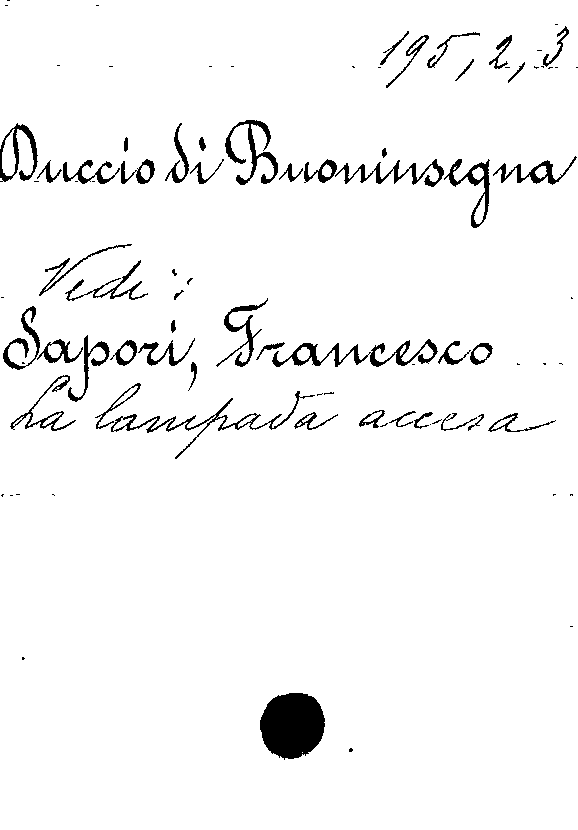 195, 2, 3
Duccio di Buoninsegna
Vedi:
Sapori, Francesco
La lampada accesa